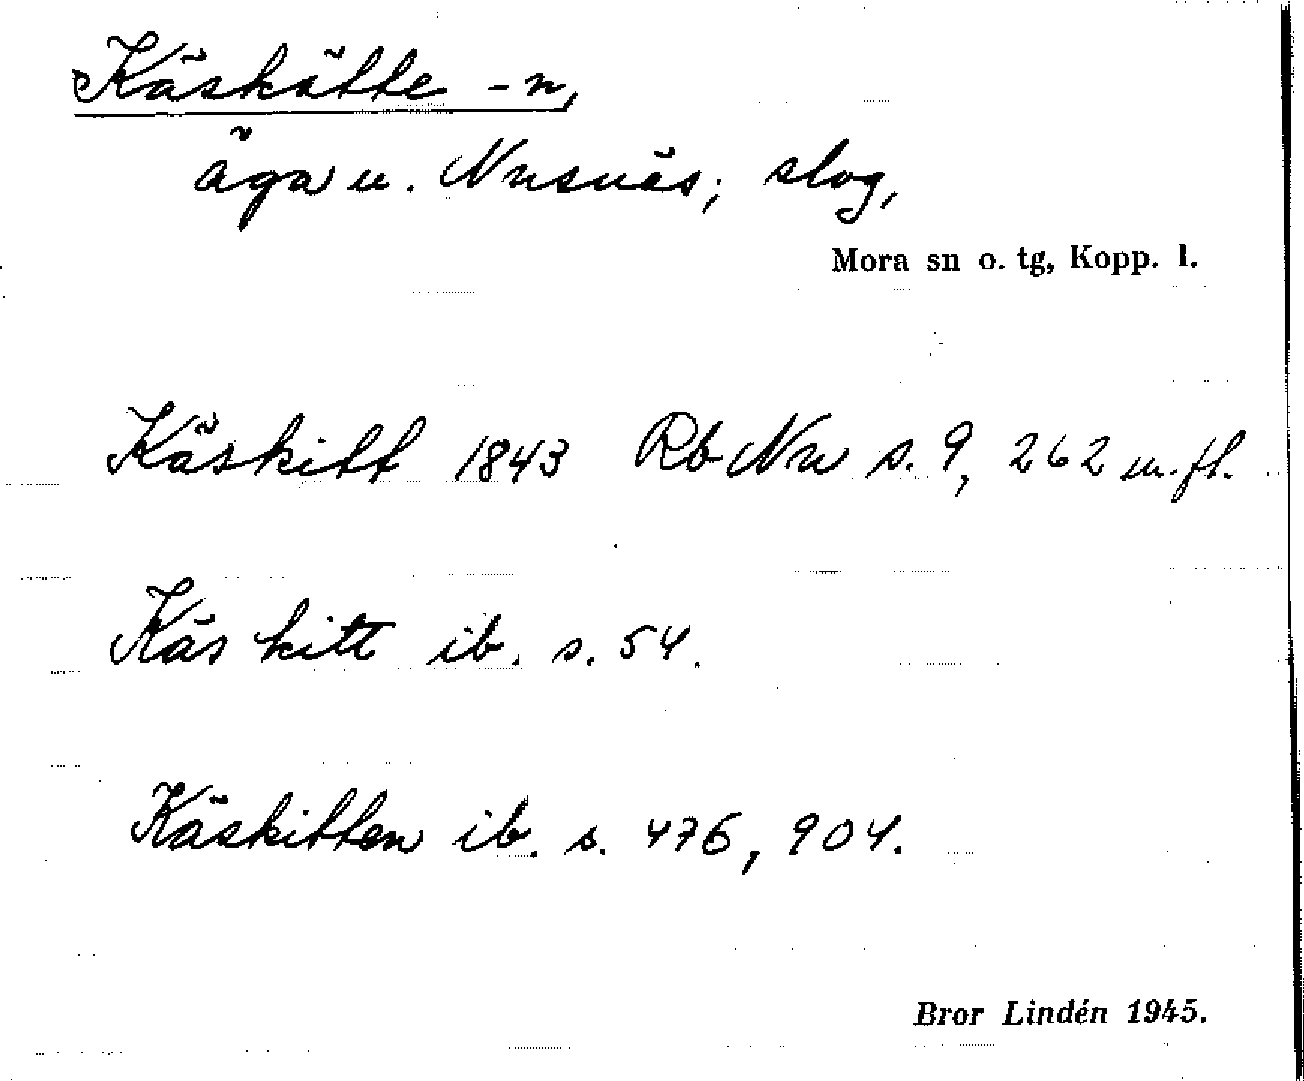 Käskätte -n,
äga u. Nusnäs; slog,
Mora sn o. tg, Kopp. l.
Käskitt 1843 Rb Nu s. 9, 262 m. fl.
Käs kitt ib. s. 54.
Käskitten ib. s. 476, 904.
Bror Lindén 1945.